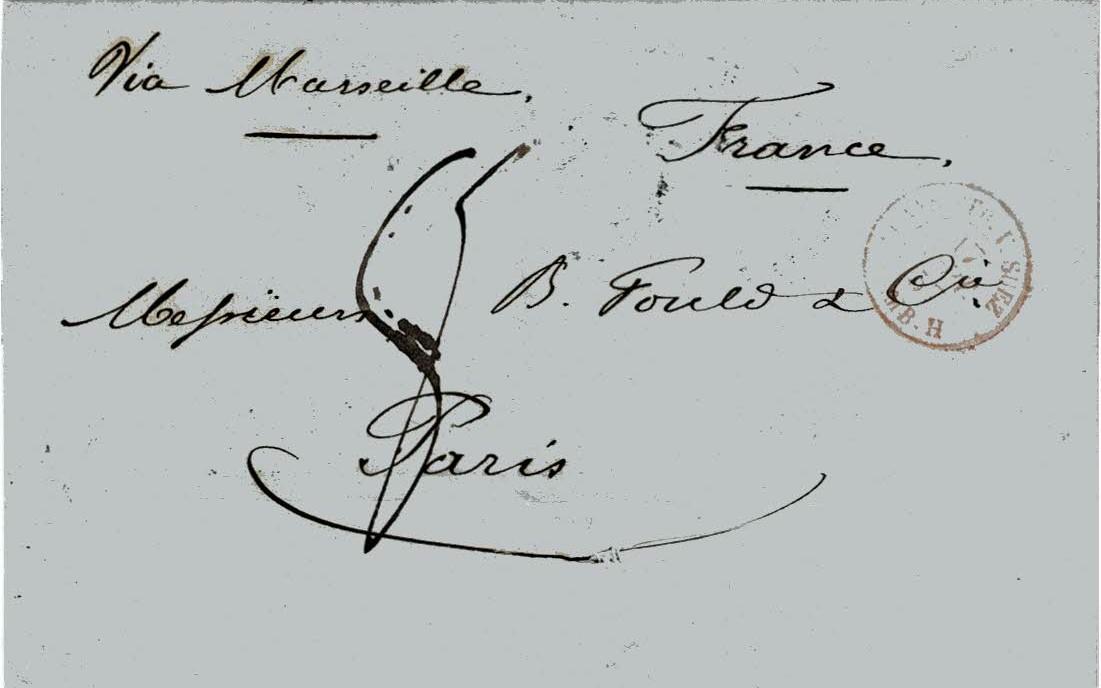 Via Marseille.
France.
Messieurs B. Fould & Cie
Paris
8
SUEZ
B.H